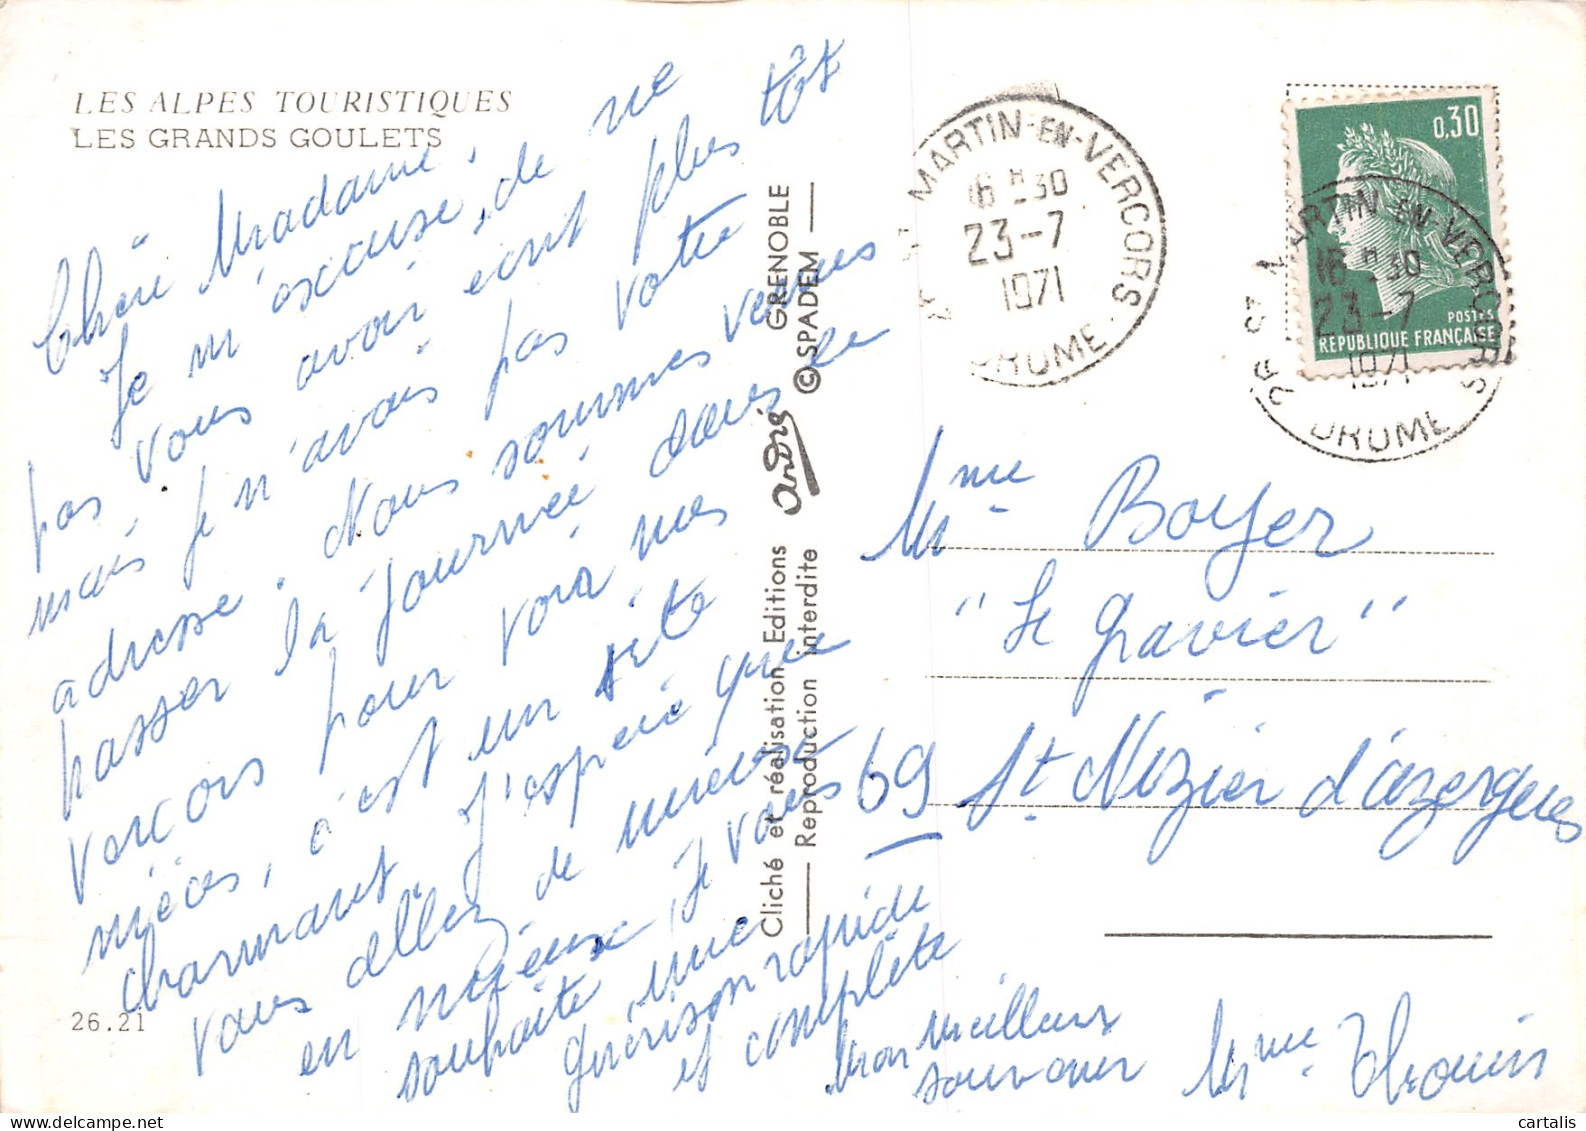 LES ALPES TOURISTIQUES
LES GRANDS GOULETS
Chère Madame,
Je m'excuse, de ne
pas vous avoir écrit plus tôt
mais je n'avais pas votre
adresse. Nous sommes venus
passer la journée dans le
Vercors pour voir mes
nièces, c'est un site
charmant. J'espère que
vous allez de mieux
en mieux, je vous
souhaite une
guérison rapide
et complète
mon meilleur
souvenir Mme Thouin
26.21
Cliché et réalisation Editions André GRENOBLE
Reproduction interdite © SPADEM
MARTIN-EN-VERCORS
16 H 30
23-7
1971
DROME
0,30
POSTES
REPUBLIQUE FRANÇAISE
MARTIN-EN-VERCORS
16 H 30
23-7
1971
DROME
Mme Boyer
"Le Gravier"
69 St Nizier d'azergues
cartalis